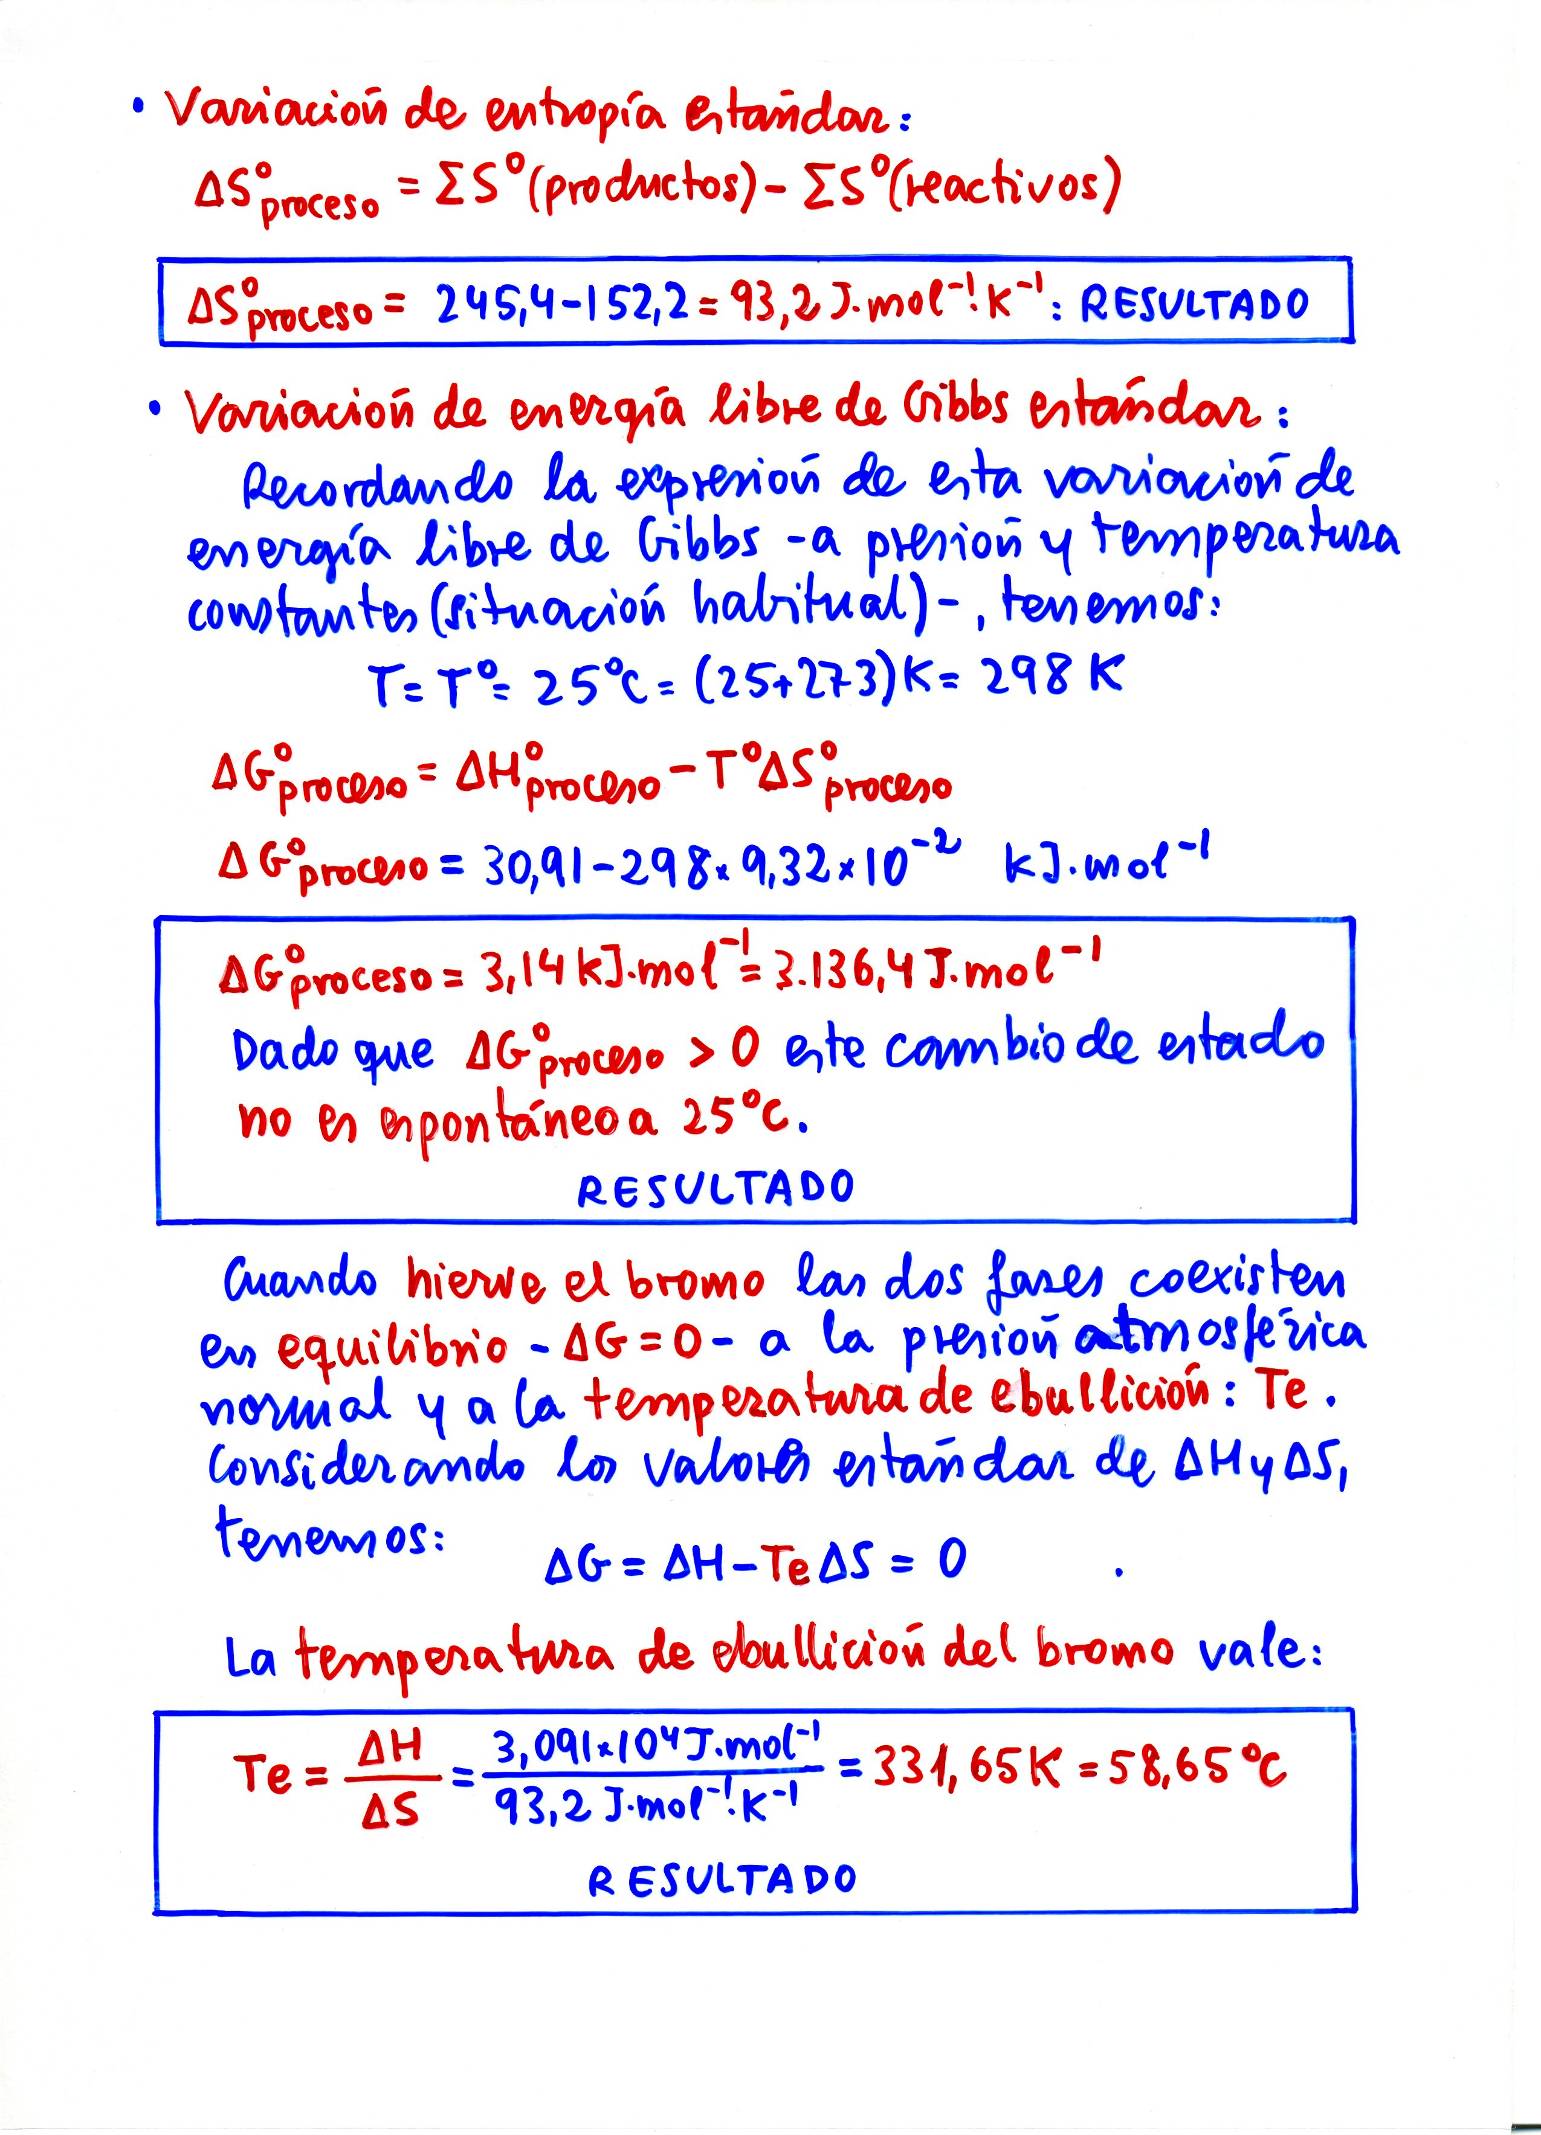 • Variación de entropía estándar:
ΔS°proceso = ΣS°(productos) - ΣS°(reactivos)
ΔS°proceso = 245,4-152,2 = 93,2 J·mol⁻¹·K⁻¹: RESULTADO
• Variación de energía libre de Gibbs estándar:
Recordando la expresión de esta variación de
energía libre de Gibbs -a presión y temperatura
constantes (situación habitual)-, tenemos:
T = T° = 25°C = (25+273)K = 298 K
ΔG°proceso = ΔH°proceso - T°ΔS°proceso
ΔG°proceso = 30,91-298×9,32×10⁻² kJ·mol⁻¹
ΔG°proceso = 3,14 kJ·mol⁻¹ = 3.136,4 J·mol⁻¹
Dado que ΔG°proceso > 0 este cambio de estado
no es espontáneo a 25°C.
RESULTADO
Cuando hierve el bromo las dos fases coexisten
en equilibrio - ΔG = 0 - a la presión atmosférica
normal y a la temperatura de ebullición: Te.
Considerando los valores estándar de ΔH y ΔS,
tenemos:
ΔG = ΔH - TeΔS = 0 .
La temperatura de ebullición del bromo vale:
Te = ΔH/ΔS = 3,091×10⁴ J·mol⁻¹/93,2 J·mol⁻¹·K⁻¹ = 331,65 K = 58,65 °C
RESULTADO